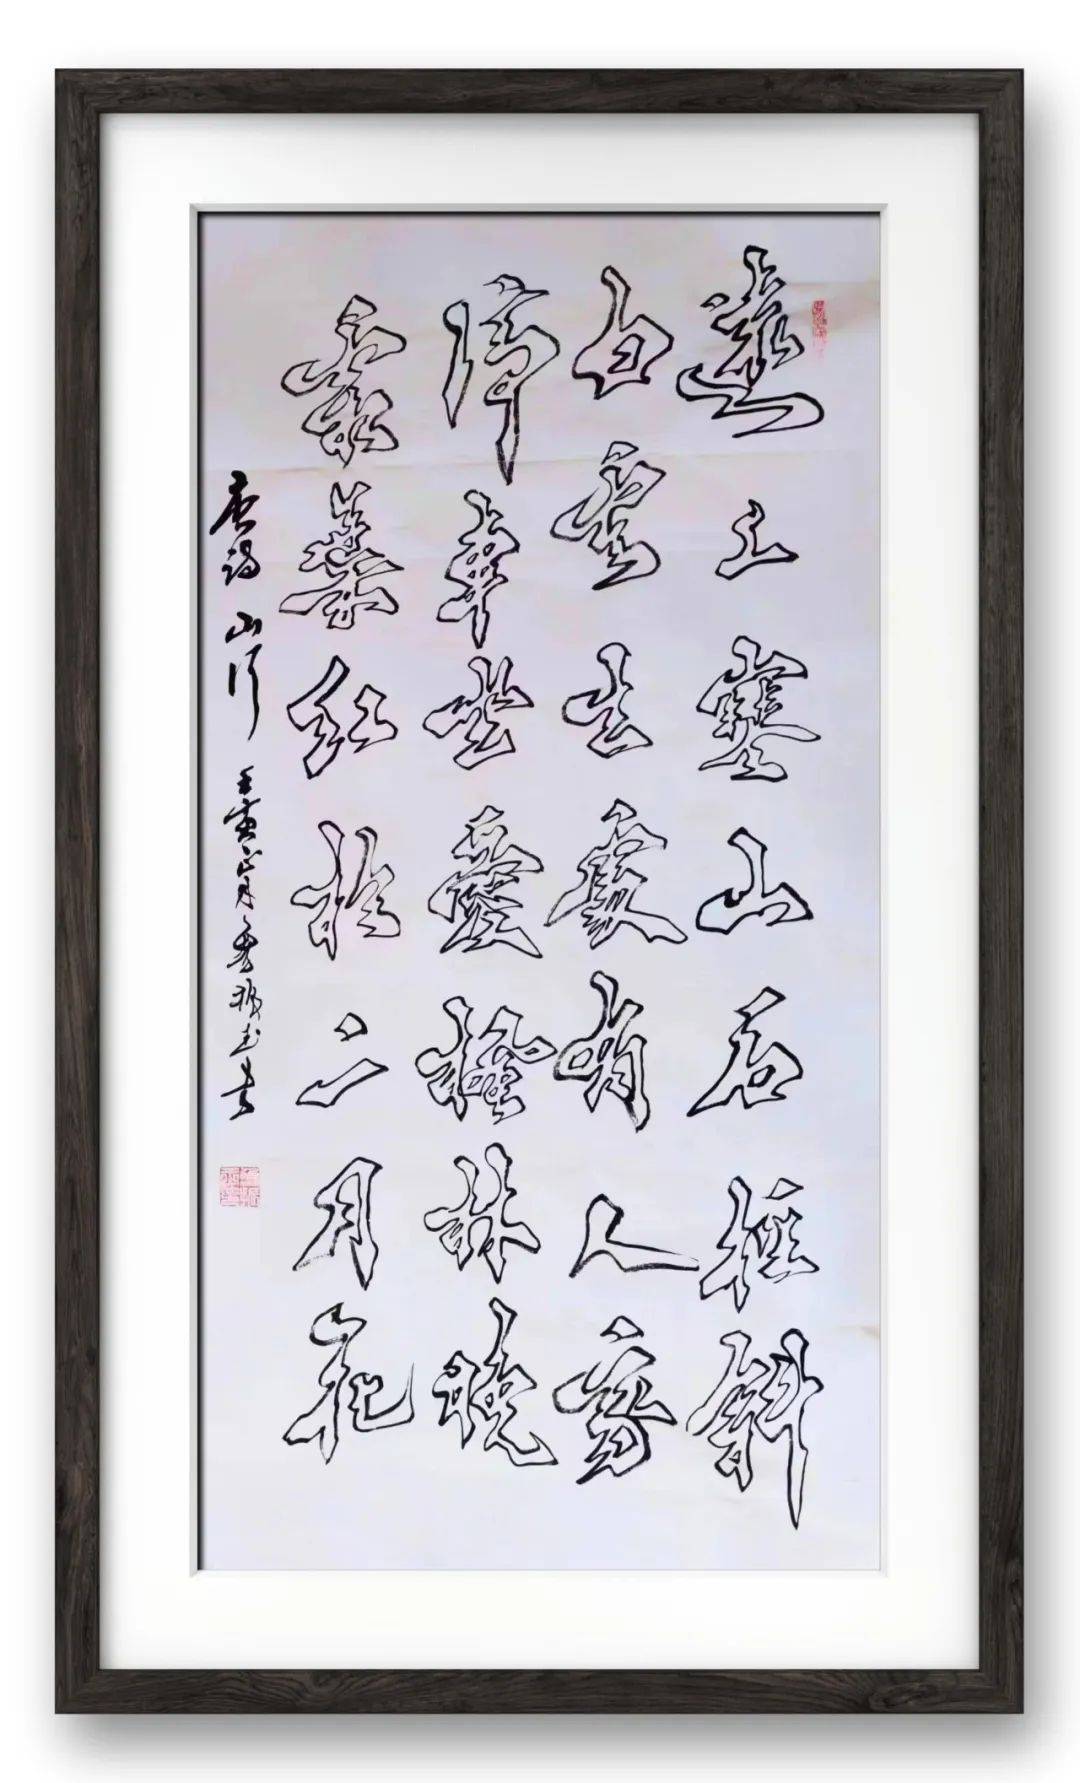 遠上寒山石徑斜
白雲生處有人家
停車坐愛楓林晚
霜葉紅於二月花
唐詩 山行 壬寅正月 書